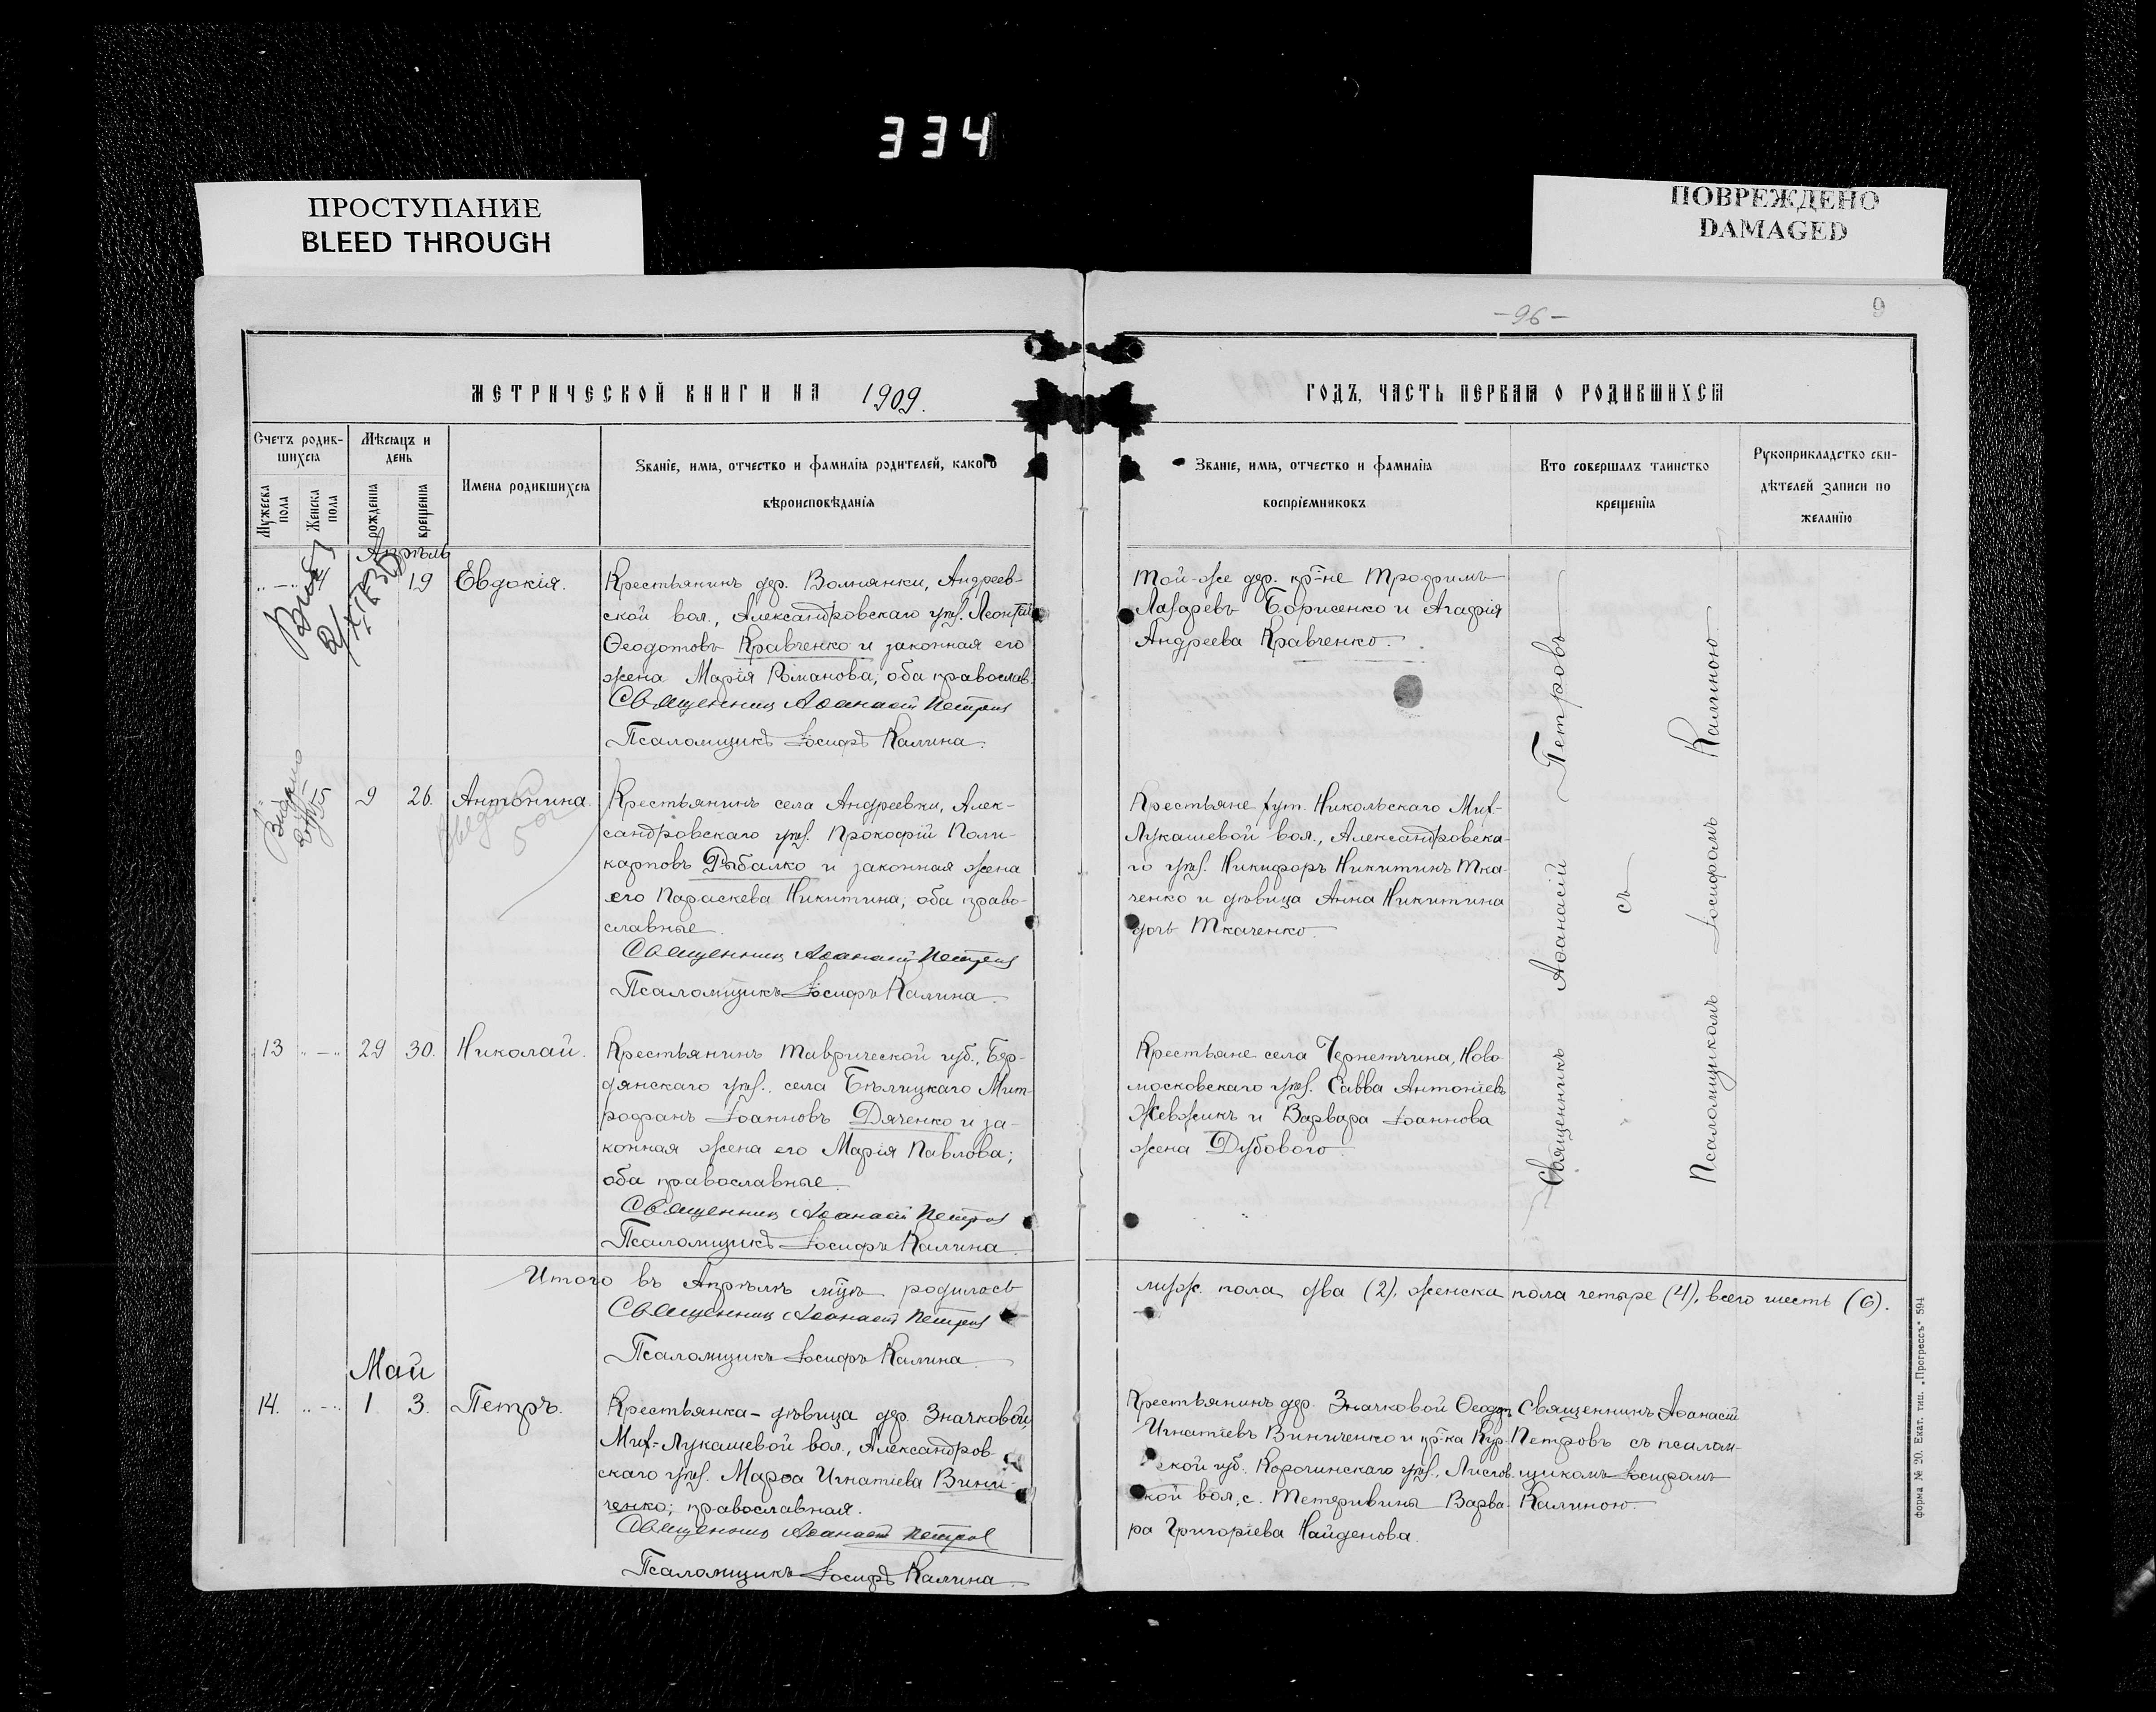 334
ПРОСТУПАНИЕ
BLEED THROUGH
ПОВРЕЖДЕНО
DAMAGED
МЕТРИЧЕСКОЙ КНИГИ НА 1909.
Счетъ родив-
шихся
Мужеска пола
Женска пола
Мѣсяцъ и
день
рожденія
крещенія
Имена родившихся
Званіе, имя, отчество и фамилія родителей, какого
вѣроисповѣданія
Апрѣль
19 Евдокія.
Крестьянинъ дер. Волнянки, Андреев-
ской вол., Александровскаго уѣз. Леонтій
Ѳеодотовъ Кравченко и законная его
жена Марія Романова, оба православ.
Священникъ Аѳанасій Петровъ
Псаломщикъ Іосифъ Калина.
Выдано
9 26. Антонина.
Крестьянинъ села Андреевки, Алек-
сандровскаго уѣз. Прокофій Поли-
карповъ Рыбалко и законная жена
его Параскева Никитина, оба право-
славные.
Священникъ Аѳанасій Петровъ
Псаломщикъ Іосифъ Калина.
13 29 30. Николай.
Крестьянинъ Таврической губ., Бер-
дянскаго уѣз. села Бѣлицкаго Мит-
рофанъ Іоанновъ Дяченко и за-
конная жена его Марія Павлова;
оба православные.
Священникъ Аѳанасій Петровъ
Псаломщикъ Іосифъ Калина.
Итого въ Апрѣлѣ м-цѣ родилось
Священникъ Аѳанасій Петровъ
Псаломщикъ Іосифъ Калина
Май
14. 1. 3. Петръ.
Крестьянка-дѣвица дер. Значковой,
Мих-Лукашевой вол., Александров-
скаго уѣз. Марѳа Игнатіева Вини-
ченко; православная.
Священникъ Аѳанасій Петровъ
Псаломщикъ Іосифъ Калина.
-96-
9
ГОДЪ, ЧАСТЬ ПЕРВАЯ О РОДИВШИХСЯ
Званіе, имя, отчество и фамилія
воспріемниковъ
Кто совершалъ таинство
крещенія
Рукоприкладство сви-
дѣтелей записи по
желанію
Той-же дер. кр-не Трофимъ
Лазаревъ Борисенко и Агафія
Андреева Кравченко.
Крестьяне хут. Никольскаго Мих-
Лукашевой вол., Александровска-
го уѣз. Никифоръ Никитинъ Тка-
ченко и дѣвица Анна Никитина
дочь Ткаченко.
Крестьяне села Чернетчина, Ново-
московскаго уѣз. Савва Антоніевъ
Жевжикъ и Варвара Іоаннова
жена Дубового.
Священникъ Аѳанасій Петровъ
съ
Псаломщикомъ Іосифомъ Калиною.
муж. пола два (2), женска пола четыре (4), всего шесть (6).
Крестьянинъ дер. Значковой Ѳеодотъ
Игнатіевъ Виниченко и кр-ка Кур-
ской губ. Корочинскаго уѣз.,
кой вол., с. Варва-
ра Григоріева Найденова.
Священникъ Аѳанасій
Петровъ съ псалом-
щикомъ Іосифомъ
Калиною.
форма № 20. Екат. тип. „Прогрессъ" 594